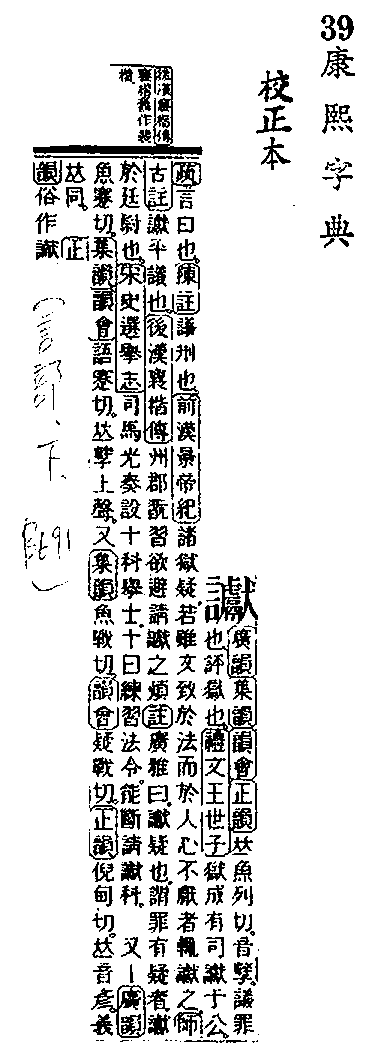 39
康熙字典
校正本
後漢襄楷傳
襄楷舊作裴
楷
讞
廣韻集韻韻會正韻𠀤魚列切。音孽。議罪
也。評獄也。禮文王世子獄成有司讞于公。
疏言曰也。陳註議刑也。前漢景帝紀諸獄疑。若雖文致於法而於人心不厭者輒讞之。師
古註讞平議也。後漢襄楷傳州郡翫習欲避請讞之煩註廣雅曰。讞疑也。謂罪有疑者讞
於廷尉也。宋史選舉志司馬光奏設十科舉士。十曰練習法令。能斷請讞科。 又|廣韻
魚蹇切。集韻韻會語蹇切。𠀤孽上聲。又集韻魚戰切。韻會疑戰切。正韻倪甸切。𠀤音彥。義
𠀤同。 正
韻俗作讞
（言部、下、